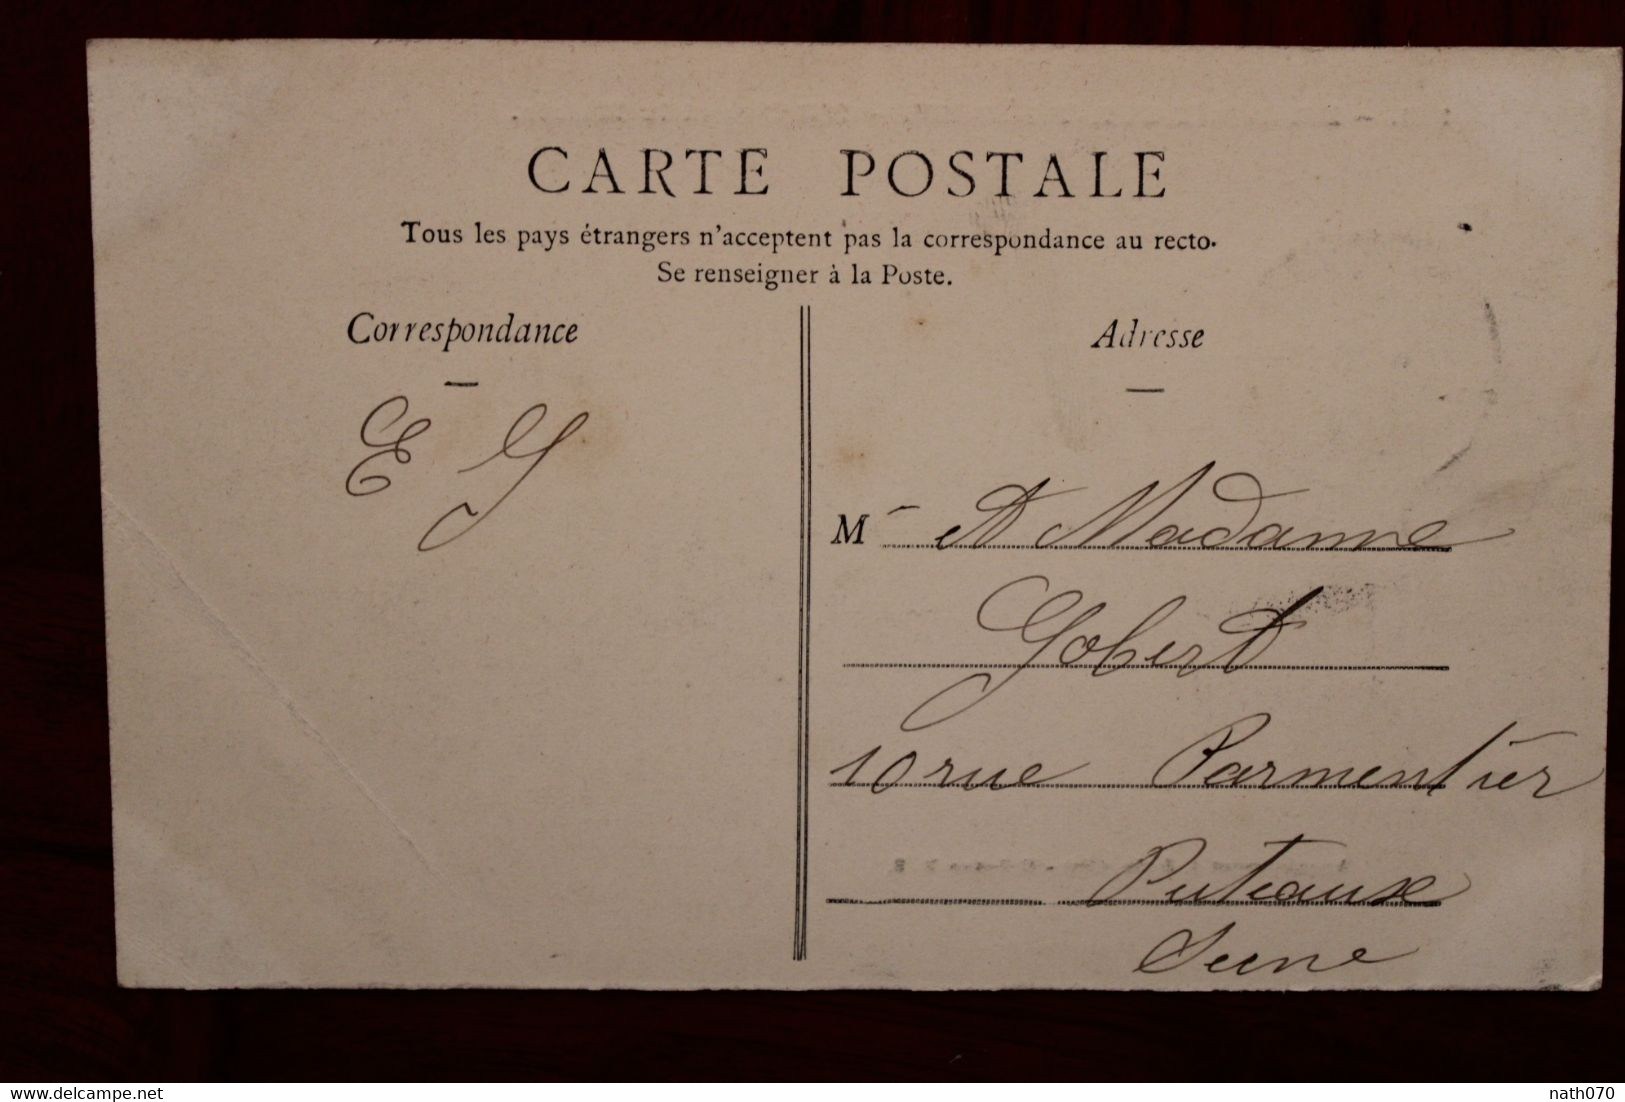 CARTE POSTALE
Tous les pays étrangers n'acceptent pas la correspondance au recto.
Se renseigner à la Poste.
Correspondance
Adresse
E G
M et Madame
Gobert
10 rue Parmentier
Puteaux
Seine
www.delcampe.net
nath070